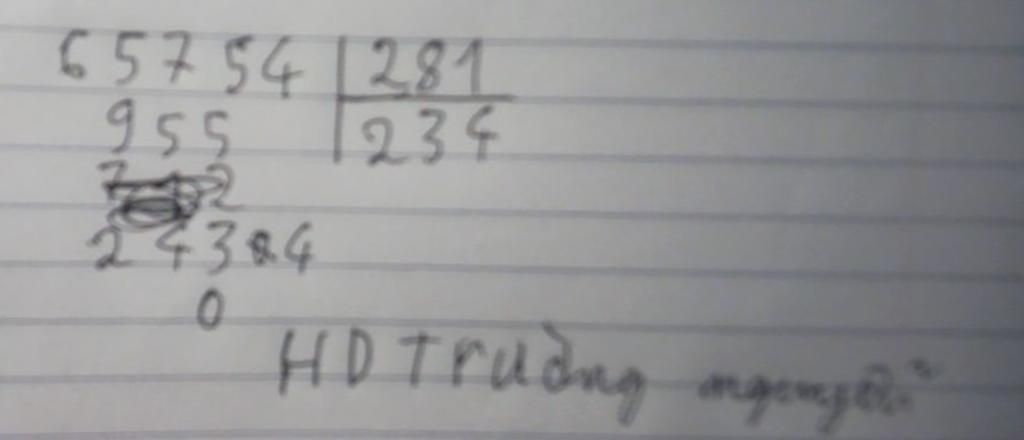 65754 281
955 234
2434
0
HD Trường